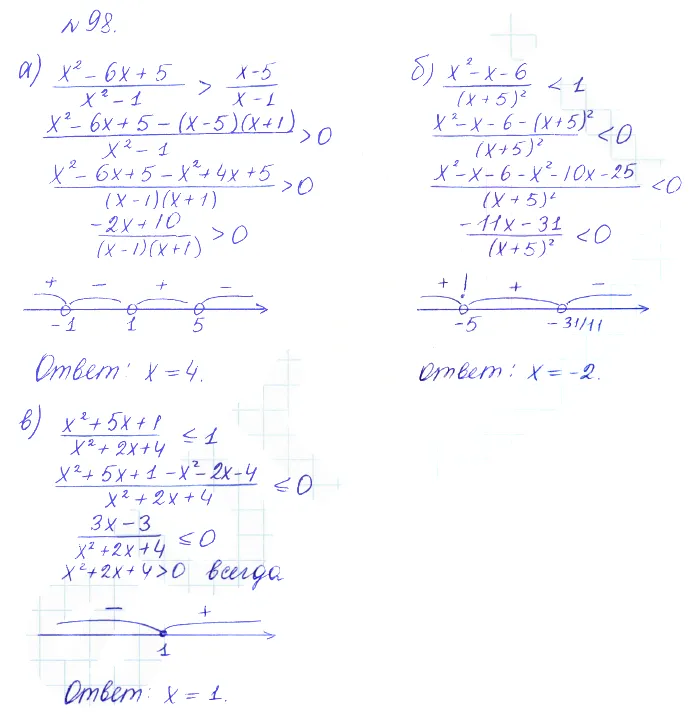 №98.
а) (x² – 6x + 5)/(x² – 1) > (x – 5)/(x – 1)
(x² – 6x + 5 – (x – 5)(x + 1))/(x² – 1) > 0
(x² – 6x + 5 – x² + 4x + 5)/((x – 1)(x + 1)) > 0
(–2x + 10)/((x – 1)(x + 1)) > 0
+ – + –
–1 1 5
Ответ: x = 4.
б) (x² – x – 6)/(x + 5)² < 1
(x² – x – 6 – (x + 5)²)/(x + 5)² < 0
(x² – x – 6 – x² – 10x – 25)/(x + 5)² < 0
(–11x – 31)/(x + 5)² < 0
+ ! + –
–5 –31/11
Ответ: x = –2.
в) (x² + 5x + 1)/(x² + 2x + 4) ≤ 1
(x² + 5x + 1 – x² – 2x – 4)/(x² + 2x + 4) ≤ 0
(3x – 3)/(x² + 2x + 4) ≤ 0
x² + 2x + 4 > 0 всегда
– +
1
Ответ: x = 1.